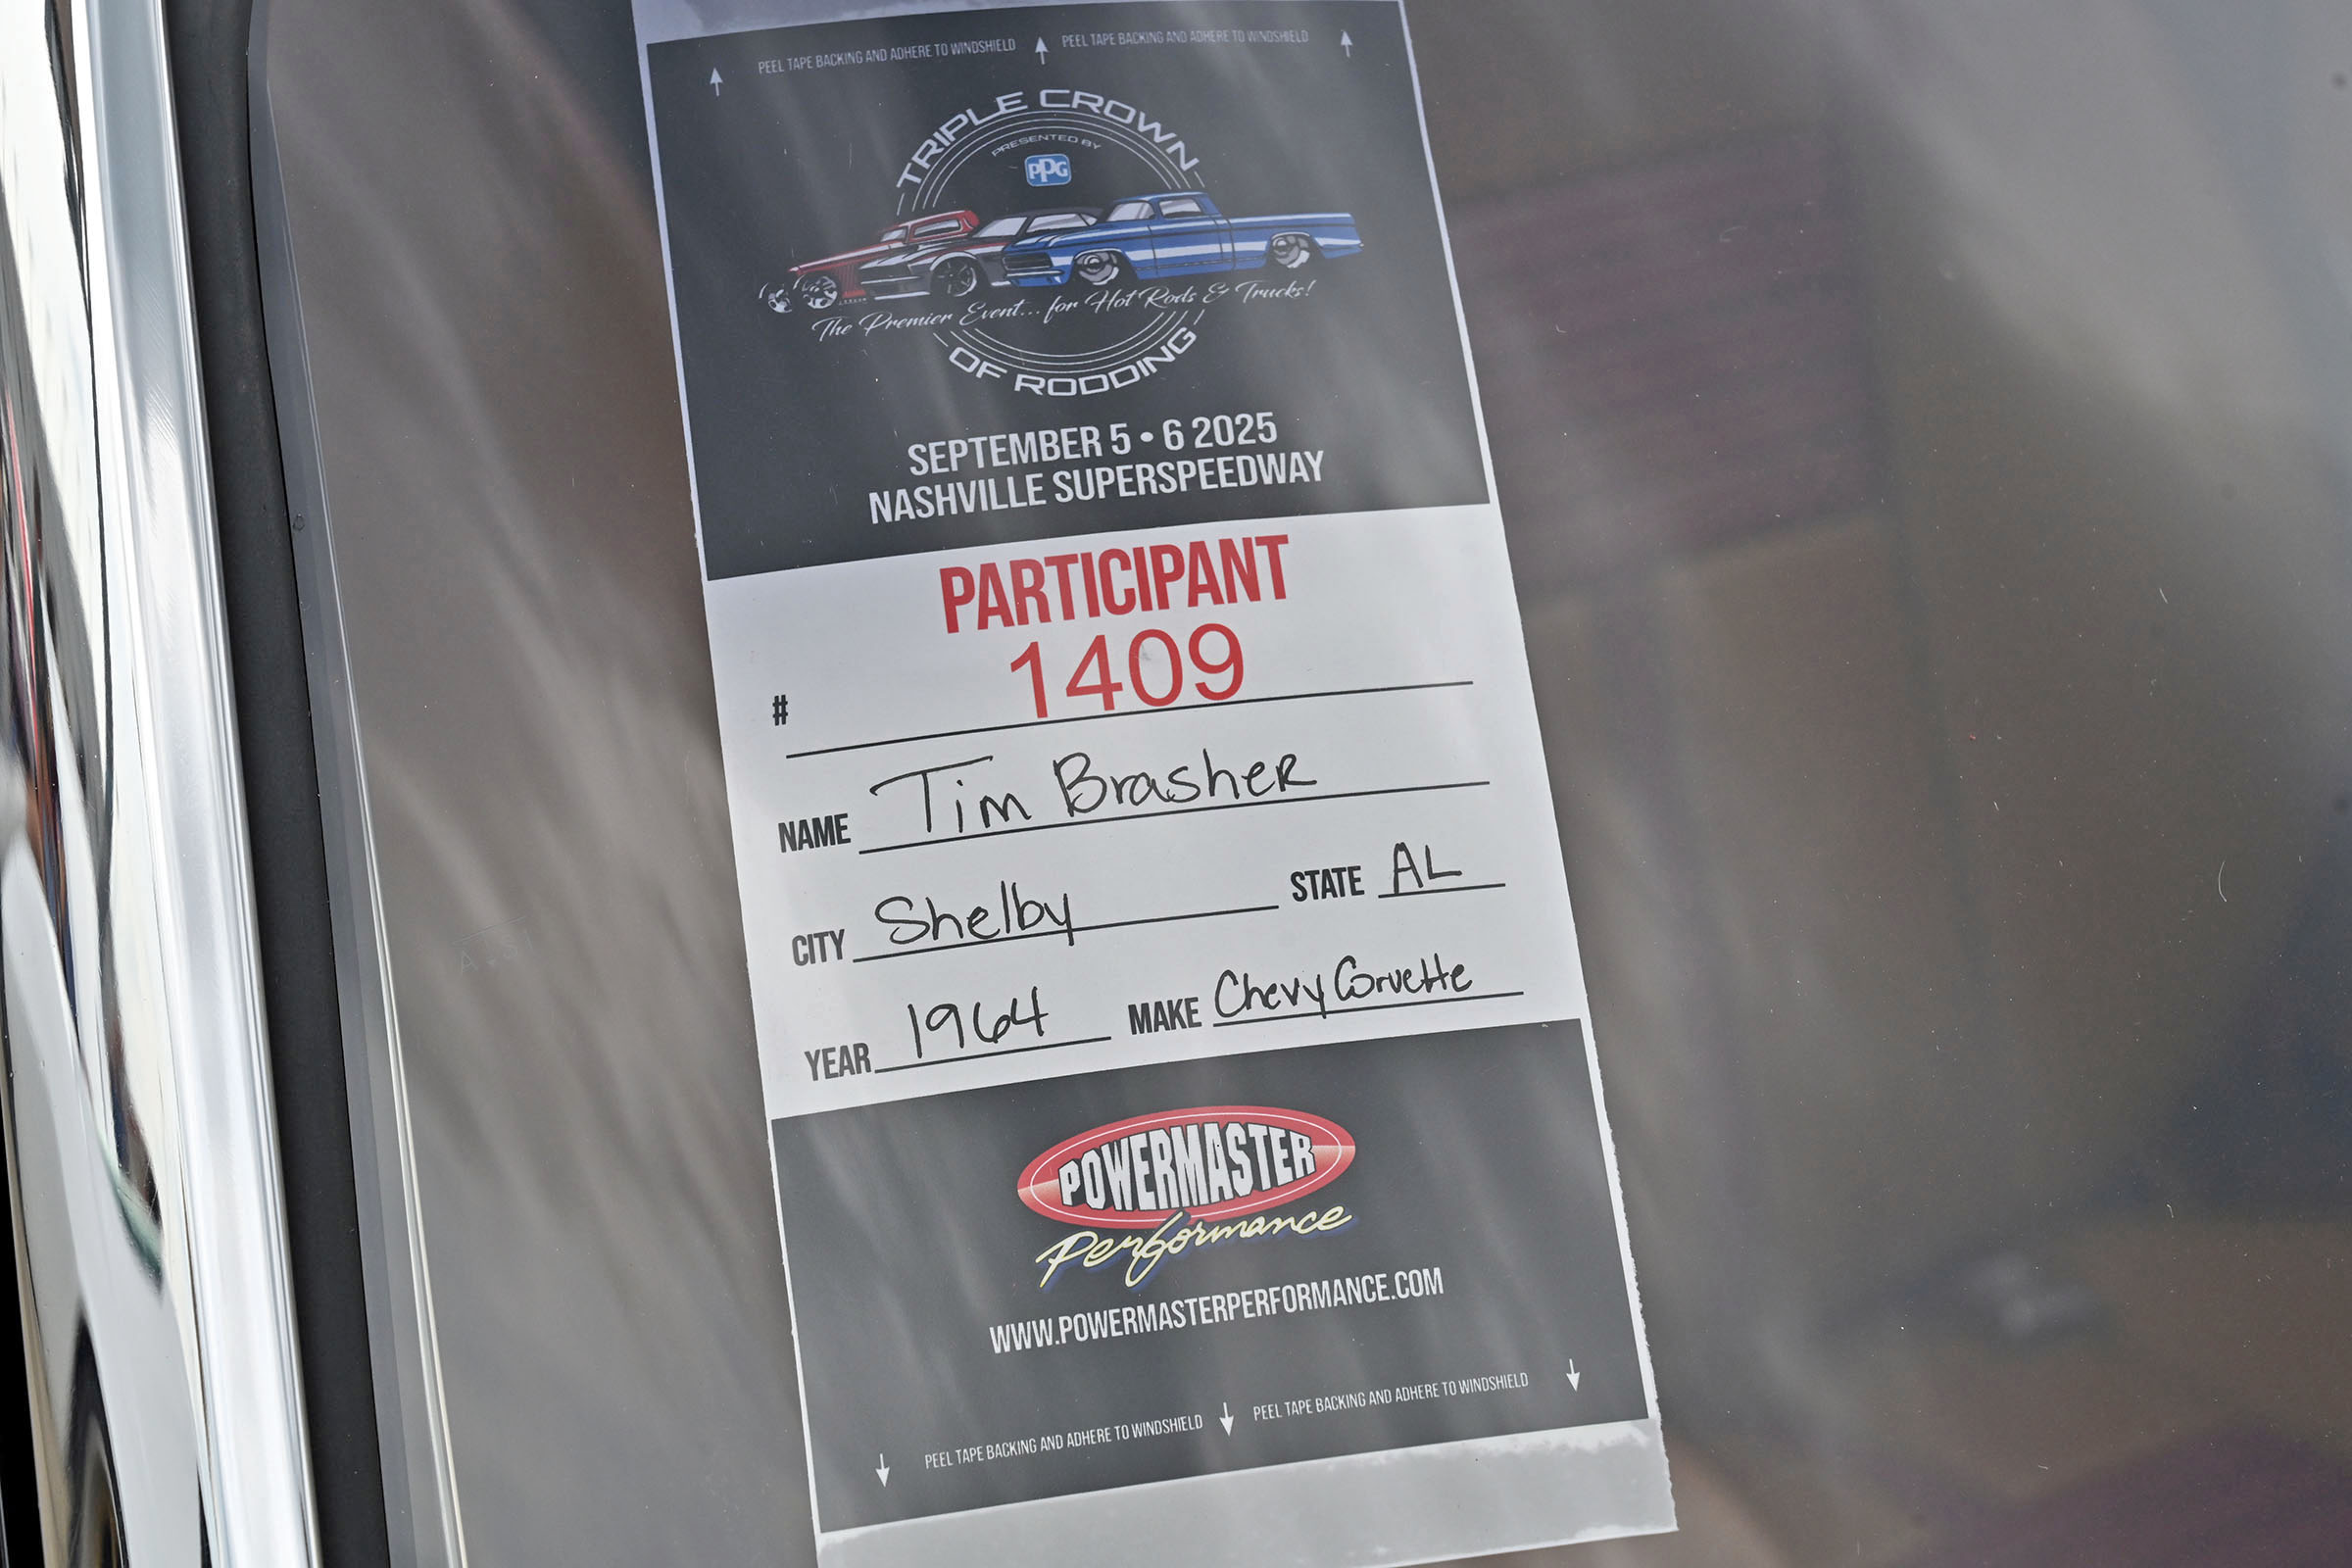 PEEL TAPE BACKING AND ADHERE TO WINDSHIELD PEEL TAPE BACKING AND ADHERE TO WINDSHIELD
TRIPLE CROWN
PRESENTED BY
PPG
The Premier Event... for Hot Rods & Trucks!
OF RODDING
SEPTEMBER 5 • 6 2025
NASHVILLE SUPERSPEEDWAY
PARTICIPANT
# 1409
NAME Tim Brasher
CITY Shelby STATE AL
YEAR 1964 MAKE Chevy Corvette
POWERMASTER
Performance
WWW.POWERMASTERPERFORMANCE.COM
PEEL TAPE BACKING AND ADHERE TO WINDSHIELD PEEL TAPE BACKING AND ADHERE TO WINDSHIELD